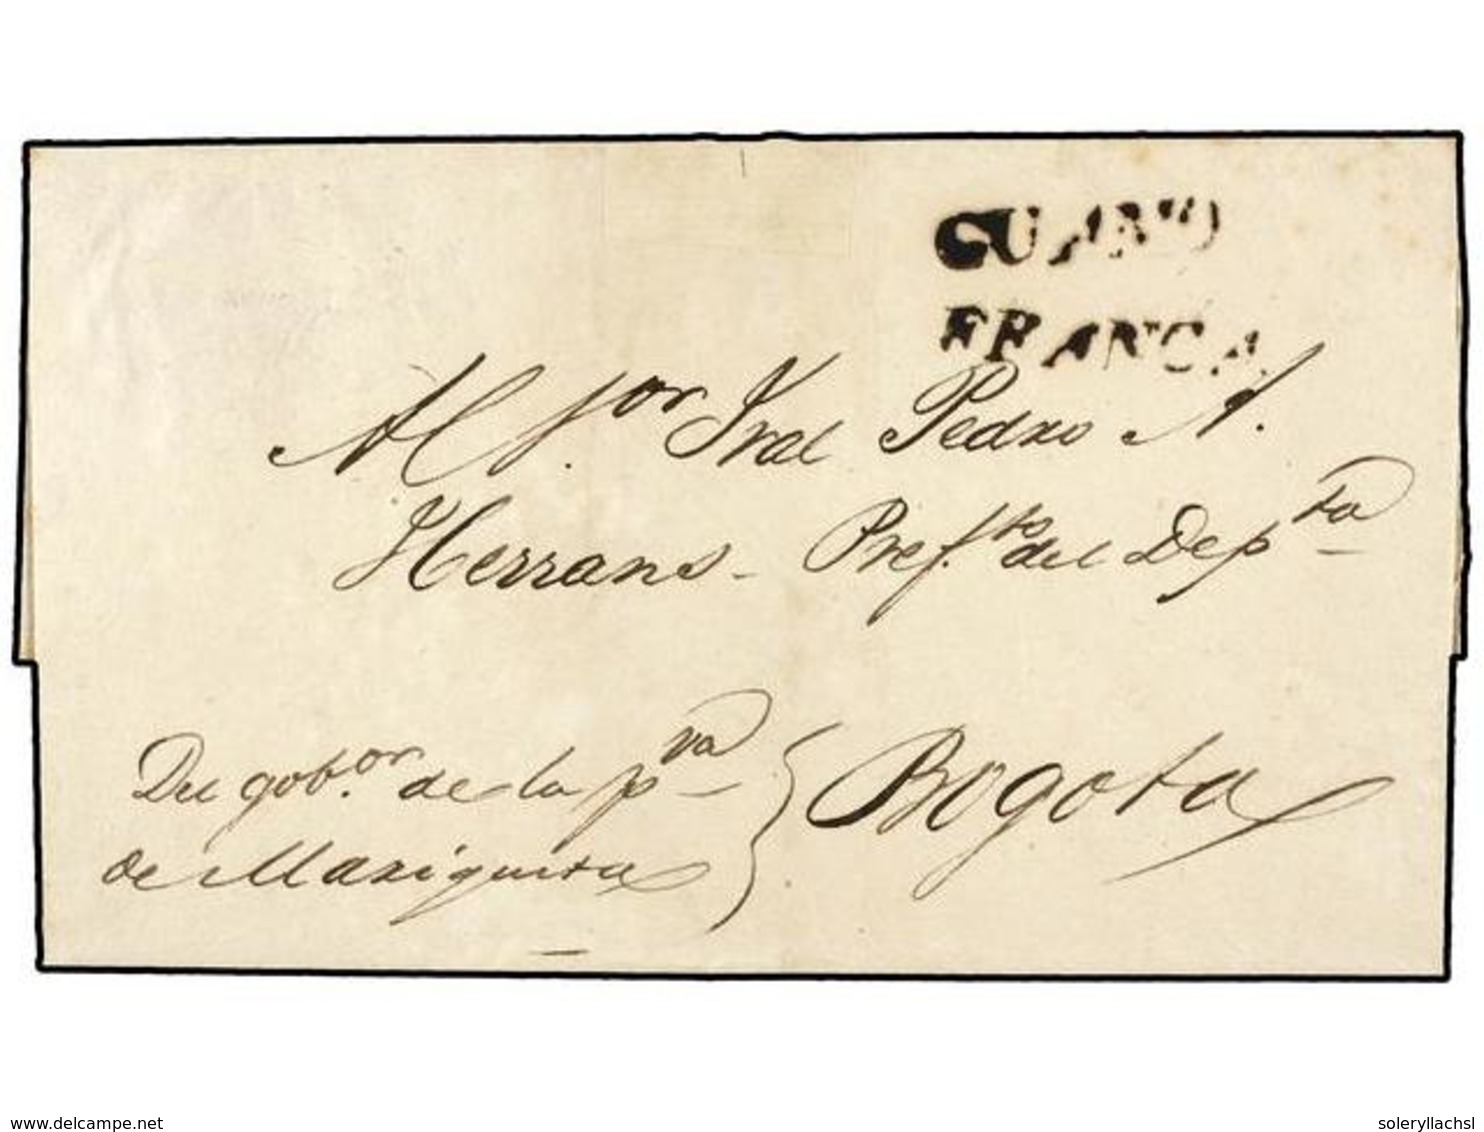 GUAMO
FRANCA
Al S.or Gral Pedro A.
Herrans - Pref.to del Dep.ta
Del gob.or de la p.va
de Mariquita
Bogota
delcampe.net
soleryllachsl